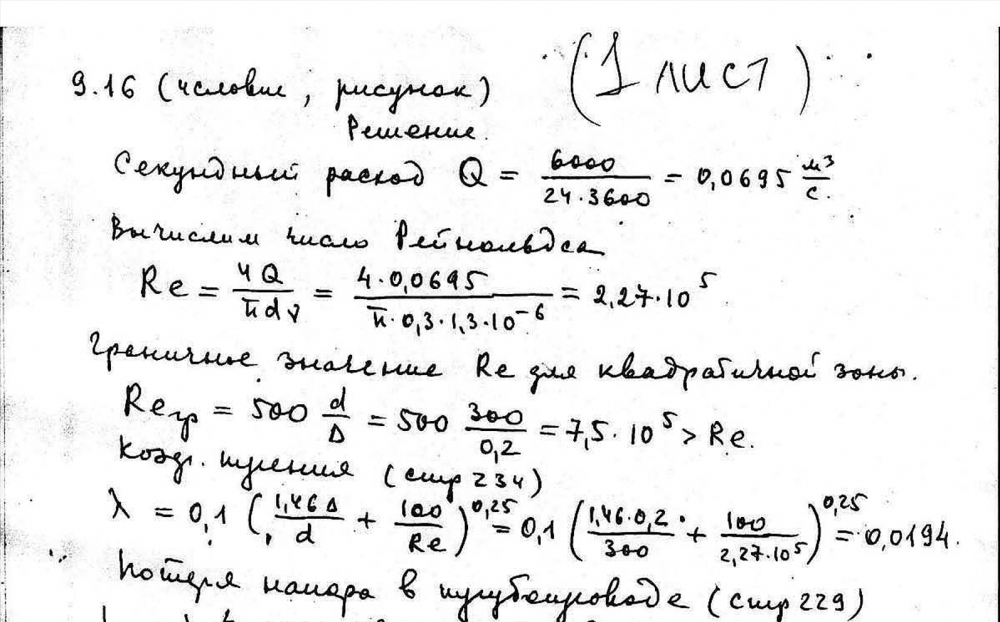 (1 лист)
9.16 (условие, рисунок)
Решение.
Секундный расход Q = 6000 / 24·3600 = 0,0695 м³/с.
Вычислим число Рейнольдса
Re = 4Q / πdν = 4·0,0695 / π·0,3·1,3·10⁻⁶ = 2,27·10⁵.
Граничное значение Re для квадратичной зоны.
Reгр = 500 d/Δ = 500 300/0,2 = 7,5·10⁵ > Re.
Коэф. трения (стр 234)
λ = 0,1 (1,46Δ/d + 100/Re)^0,25 = 0,1 (1,46·0,2/300 + 100/2,27·10⁵)^0,25 = 0,0194.
Потеря напора в трубопроводе (стр 229)